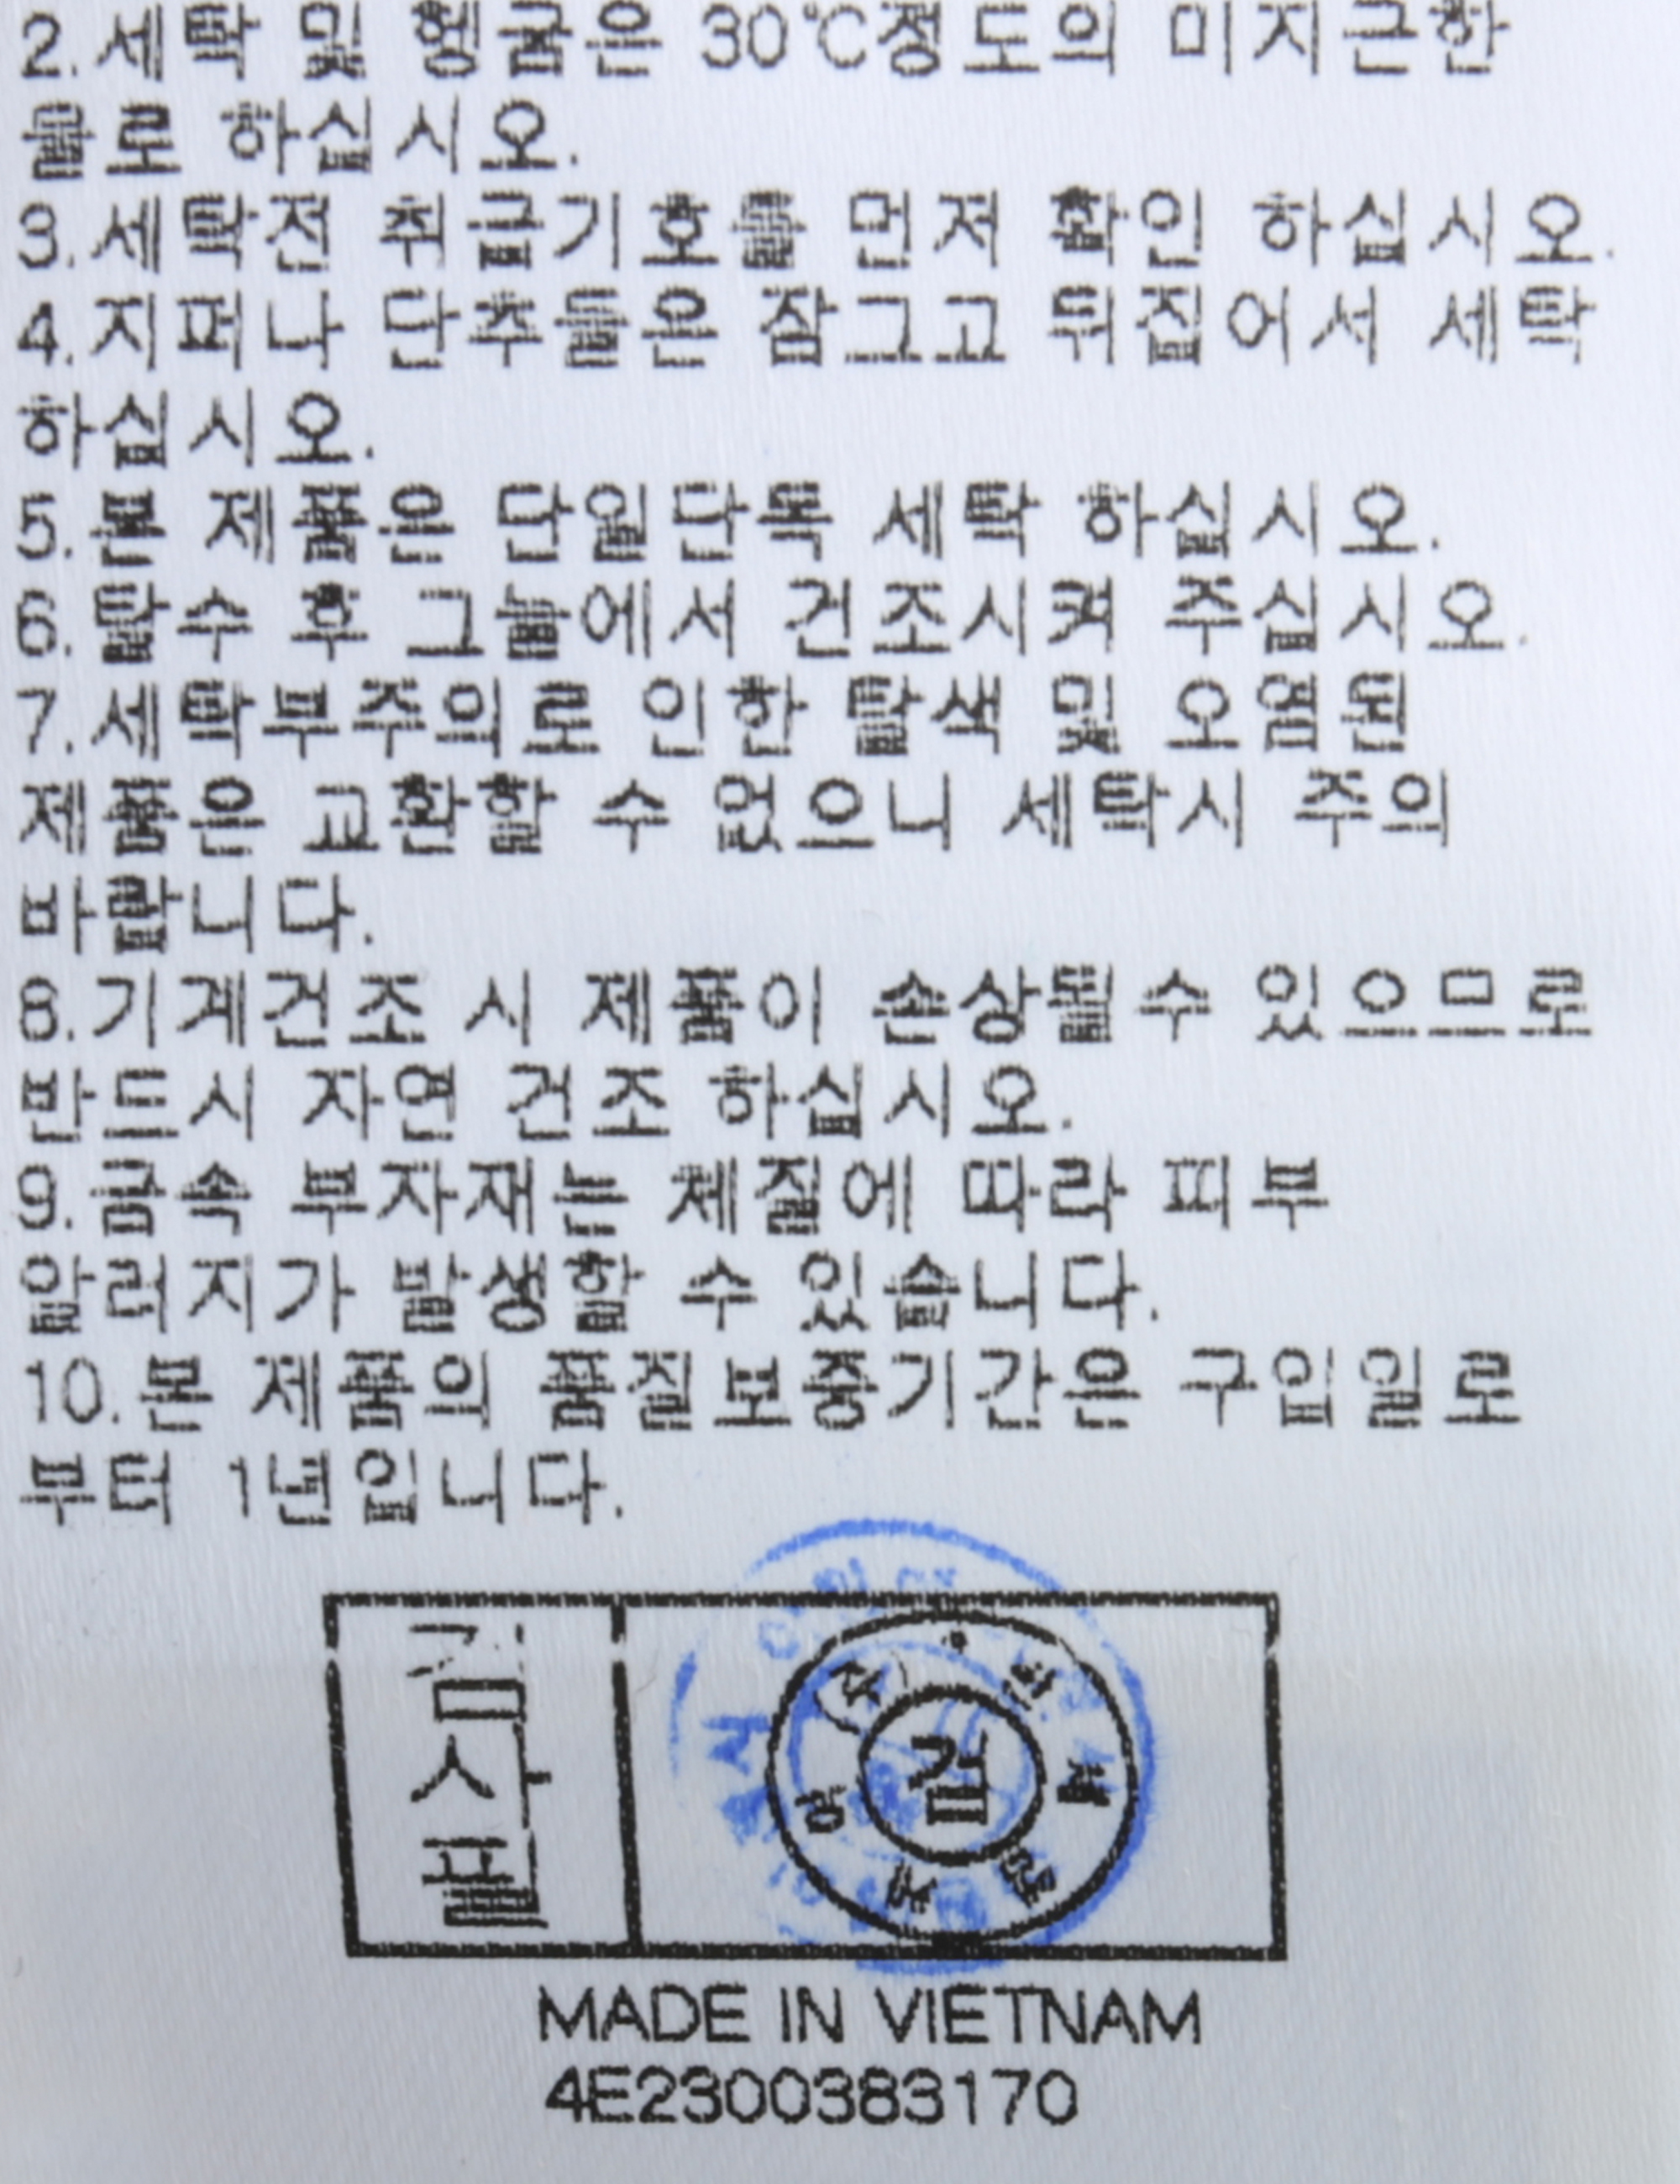 2.세탁 및 헹굼은 30℃정도의 미지근한
물로 하십시오.
3.세탁전 취급기호를 먼저 확인 하십시오.
4.지퍼나 단추들은 잠그고 뒤집어서 세탁
하십시오.
5.본 제품은 단일단독 세탁 하십시오.
6.탈수 후 그늘에서 건조시켜 주십시오.
7.세탁부주의로 인한 탈색 및 오염된
제품은 교환할 수 없으니 세탁시 주의
바랍니다.
8.기계건조 시 제품이 손상될수 있으므로
반드시 자연 건조 하십시오.
9.금속 부자재는 체질에 따라 피부
알러지가 발생할 수 있습니다.
10.본 제품의 품질보증기간은 구입일로
부터 1년입니다.
검사필
검
MADE IN VIETNAM
4E2300383170